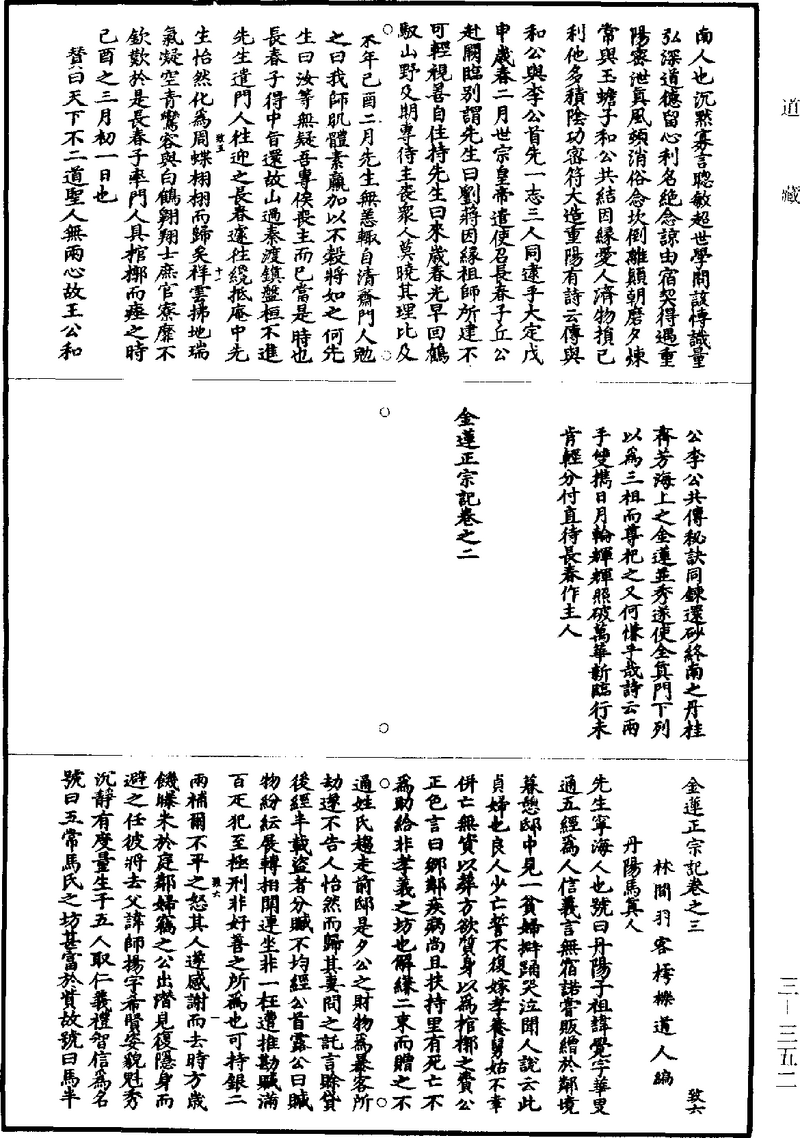 道藏
南人也沉默寡言聰敏超世學問該博識量
弘深道德留心利名絕念諒由宿契得遇重
陽密泄真風頭消俗念坎倒離顛朝磨夕煉
常與玉蟾子和公共結因緣愛人濟物損己
利他多積陰功密符大造重陽有詩云傳與
和公與李公首先一志三人同逮乎大定戊
申歲春二月世宗皇帝遣使召長春子丘公
赴闕臨別謂先生曰劉蔣因緣祖師所建不
可輕視善自住持先生曰來歲春光早回鶴
馭山野及期專待主喪眾人莫曉其理比及
不年己酉二月先生無恙輒自清齋門人勉
之曰我師肌體素羸加以不穀將如之何先
生曰汝等無疑吾專俟喪主而已當是時也
長春子得中旨還故山過秦渡鎮盤桓不進
先生遣門人往迎之長春遽往纔抵庵中先
生怡然化為周蝶栩栩而歸矣祥雲拂地瑞
致五
十一
氣凝空青鸞容與白鶴翱翔士庶官寮靡不
欽歎於是長春子率門人具棺槨而瘞之時
己酉之三月初一日也
贊曰天下不二道聖人無兩心故王公和
公李公共傳秘訣同鍊還砂終南之丹桂
齊芳海上之金蓮並秀遂使全真門下列
以為三祖而尊祀之又何慊乎哉詩云兩
手雙擕日月輪輝輝照破萬華新臨行未
肯輕分付直待長春作主人
金蓮正宗記卷之二
金蓮正宗記卷之三
致六
林間羽客樗櫟道人編
丹陽馬真人
先生寧海人也號曰丹陽子祖諱覺字華叟
通五經為人信義言無宿諾嘗販繒於鄰境
暮憩邸中見一貧婦擗踊哭泣聞人說云此
貞婦也良人少亡誓不復嫁孝養舅姑不幸
併亡無貲以葬方欲質身以為棺槨之費公
正色言曰鄉鄰疾病尚且扶持里有死亡不
為助給非孝義之坊也解縑二束而贈之不
通姓氏趨走前邸是夕公之財物為暴客所
劫遂不告人怡然而歸其妻問之託言賒貸
後經半載盜者分贓不均經公首露公曰贓
物紛紜展轉相關連坐非一枉遭推勘贓滿
百疋犯至極刑非好善之所為也可持銀二
兩補爾不平之怒其人遂感謝而去時方歲
致六
一
饑曝米於庭鄰婦竊之公出潛見復隱身而
避之任彼將去父諱師揚字希賢姿貌魁秀
沉靜有度量生子五人取仁義禮智信為名
號曰五常馬氏之坊甚富於貲故號曰馬半
三-三五二